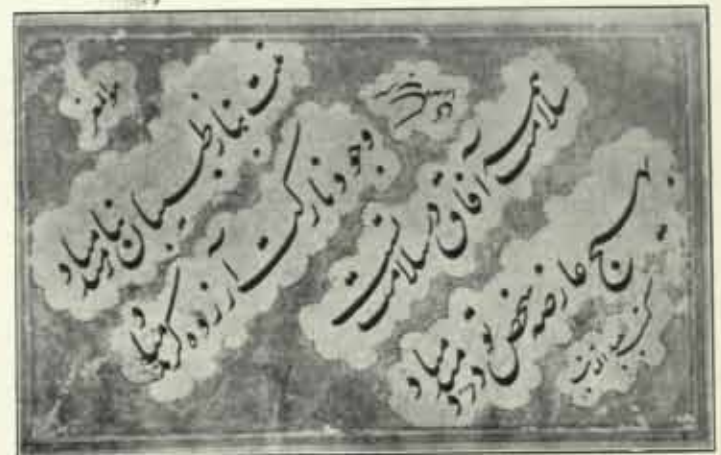 هوالمعز
تنت بناز طبیبان نیازمند مباد
وجود نازکت آزرده گزند مباد
سلامت همه آفاق در سلامت تست
بهیچ عارضه شخص تو دردمند مباد
کتبه